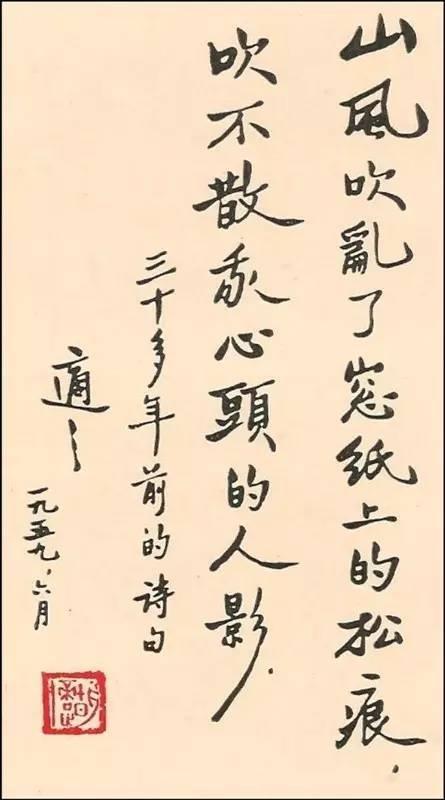 山風吹亂了窗紙上的松痕，
吹不散我心頭的人影．
三十多年前的詩句
適之
一九五九，六月